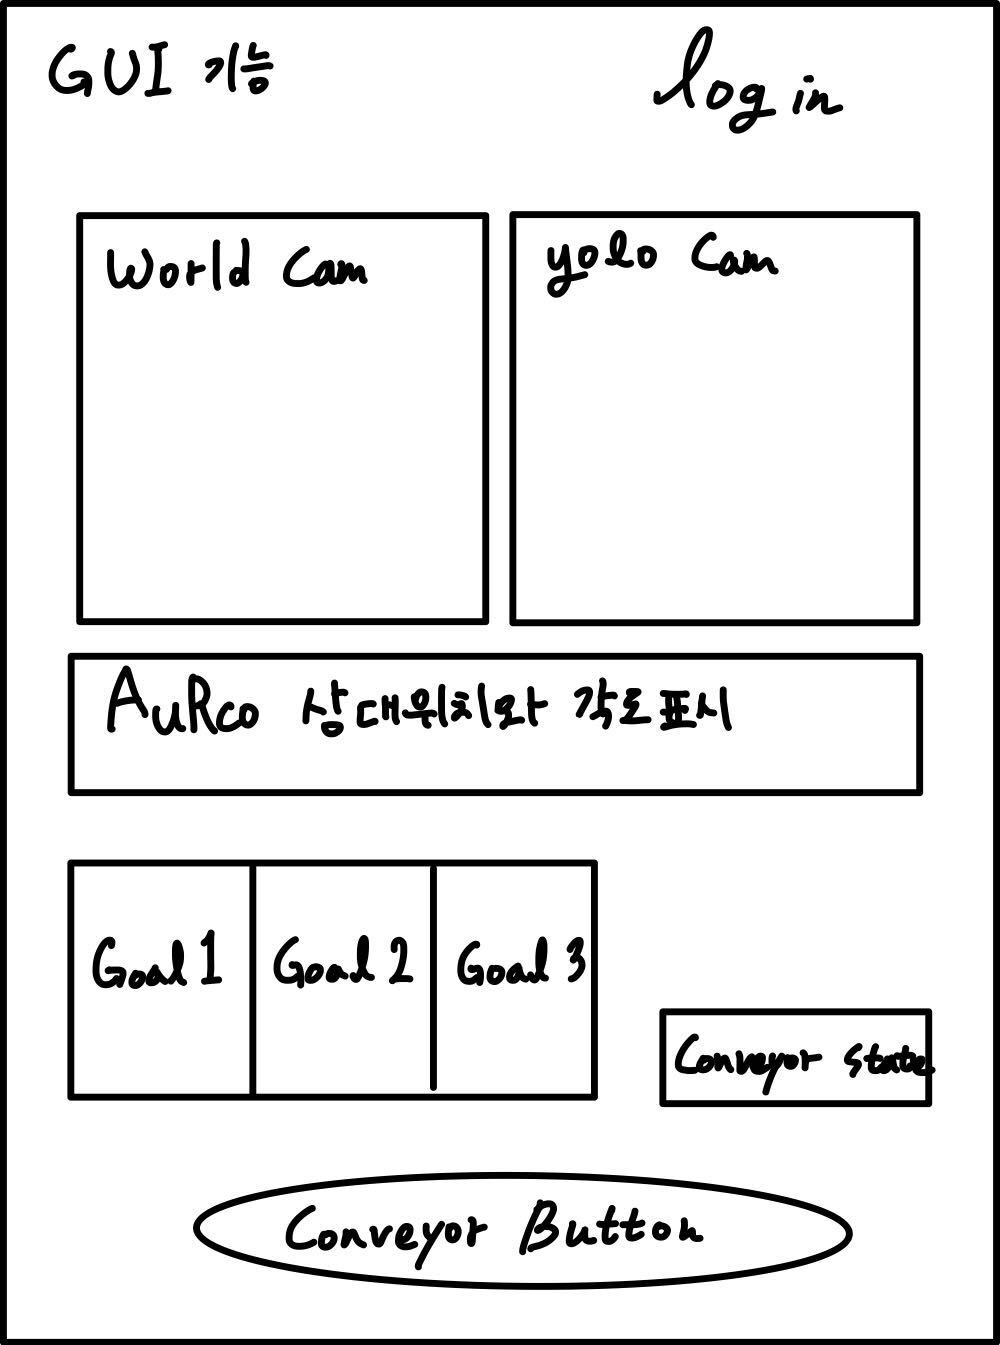 GUI 기능
log in
World Cam
yolo Cam
AuRco 상대위치와 각도표시
Goal 1
Goal 2
Goal 3
Conveyor state
Conveyor Button